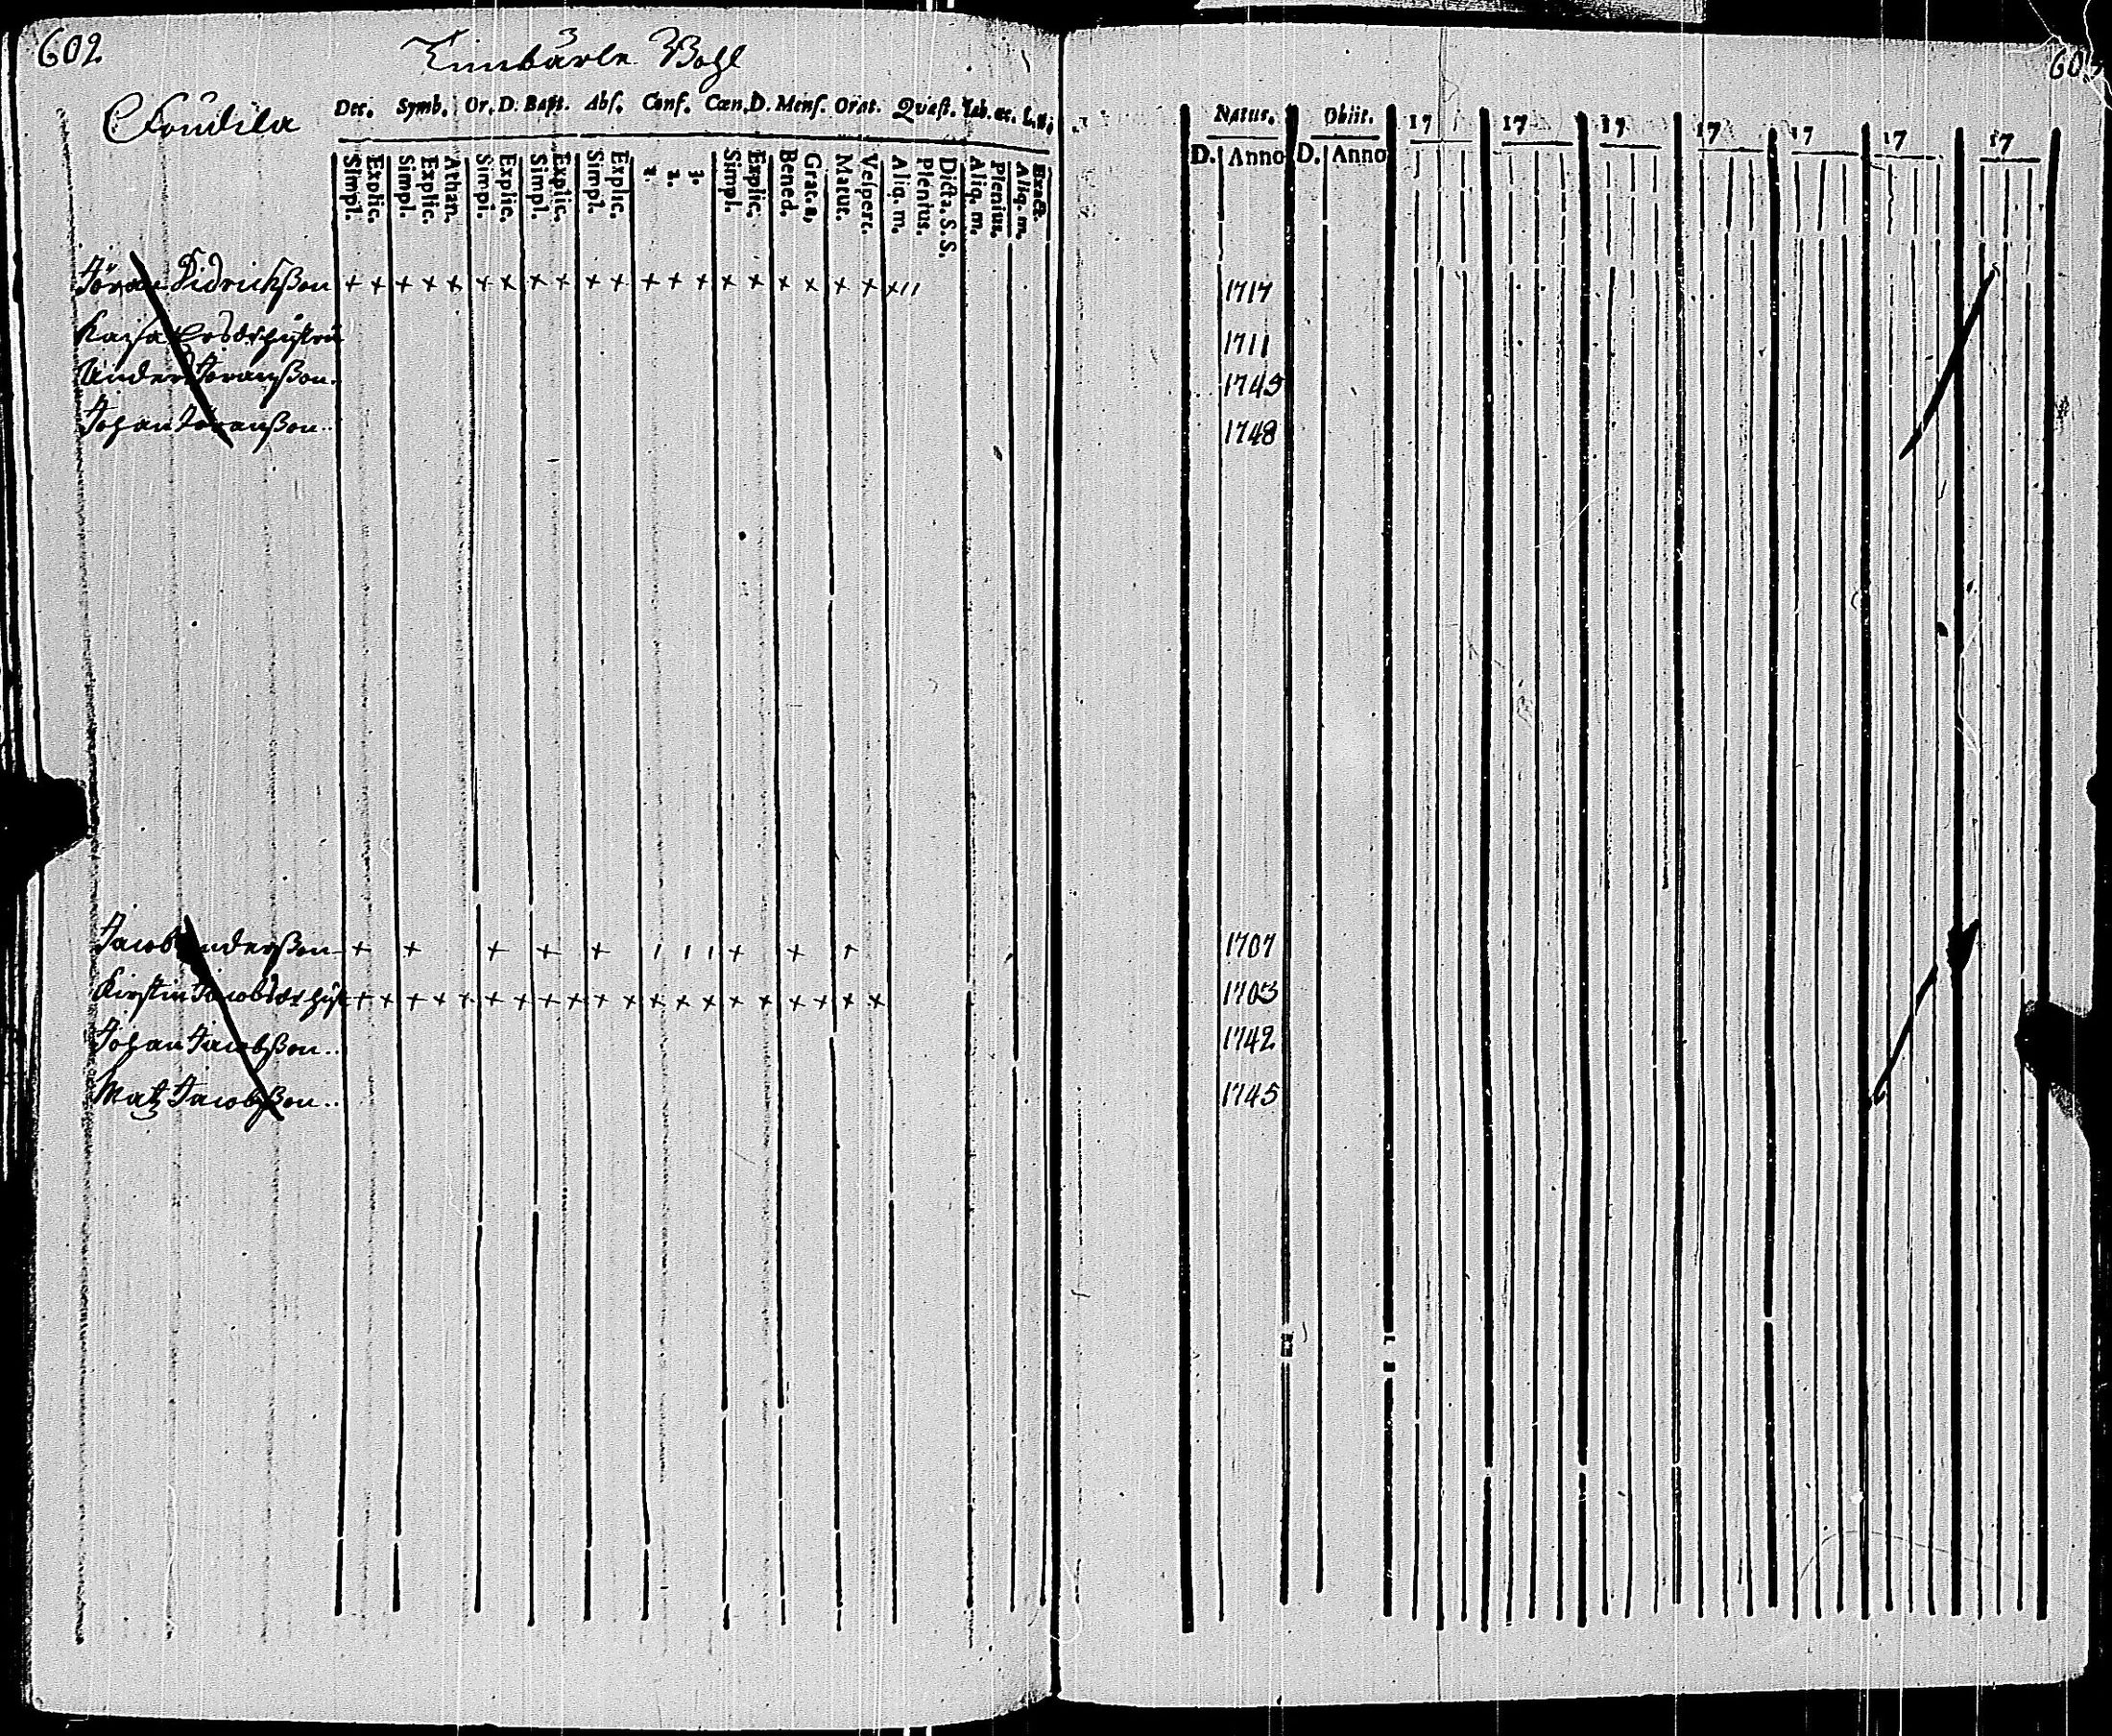 602
Timbärle Bohl
603
Dec. Symb. Or. D. Bapt. Abs. Conf. Cœn. D. Mens. Orat. Quæst.
Simpl. Explic. Simpl. Explic. Athan. Simpl. Explic. Simpl. Explic. Simpl. Explic. 1. 2. 3. Simpl. Explic. Bened. Grat. a. Matut. Vespert. Aliq. m. Plenius. Dicta. S. S. Aliq. m. Plenius. Aliq. m. Exact.
Natus. Obiit. 17 17 17 17 17 17 17
D. Anno D. Anno
Jöran Didrichßon + + + + + + + + + + + + + + + + + + + + + 1717
Kaisa 1711
Anders Joranßon 1743
Johan Joranßon 1748
Jacob Anderßon + + + + + + + 1707
Kirstin Jacobs 1703
Johan Jacobßon 1742
Matz Jacobßon 1745